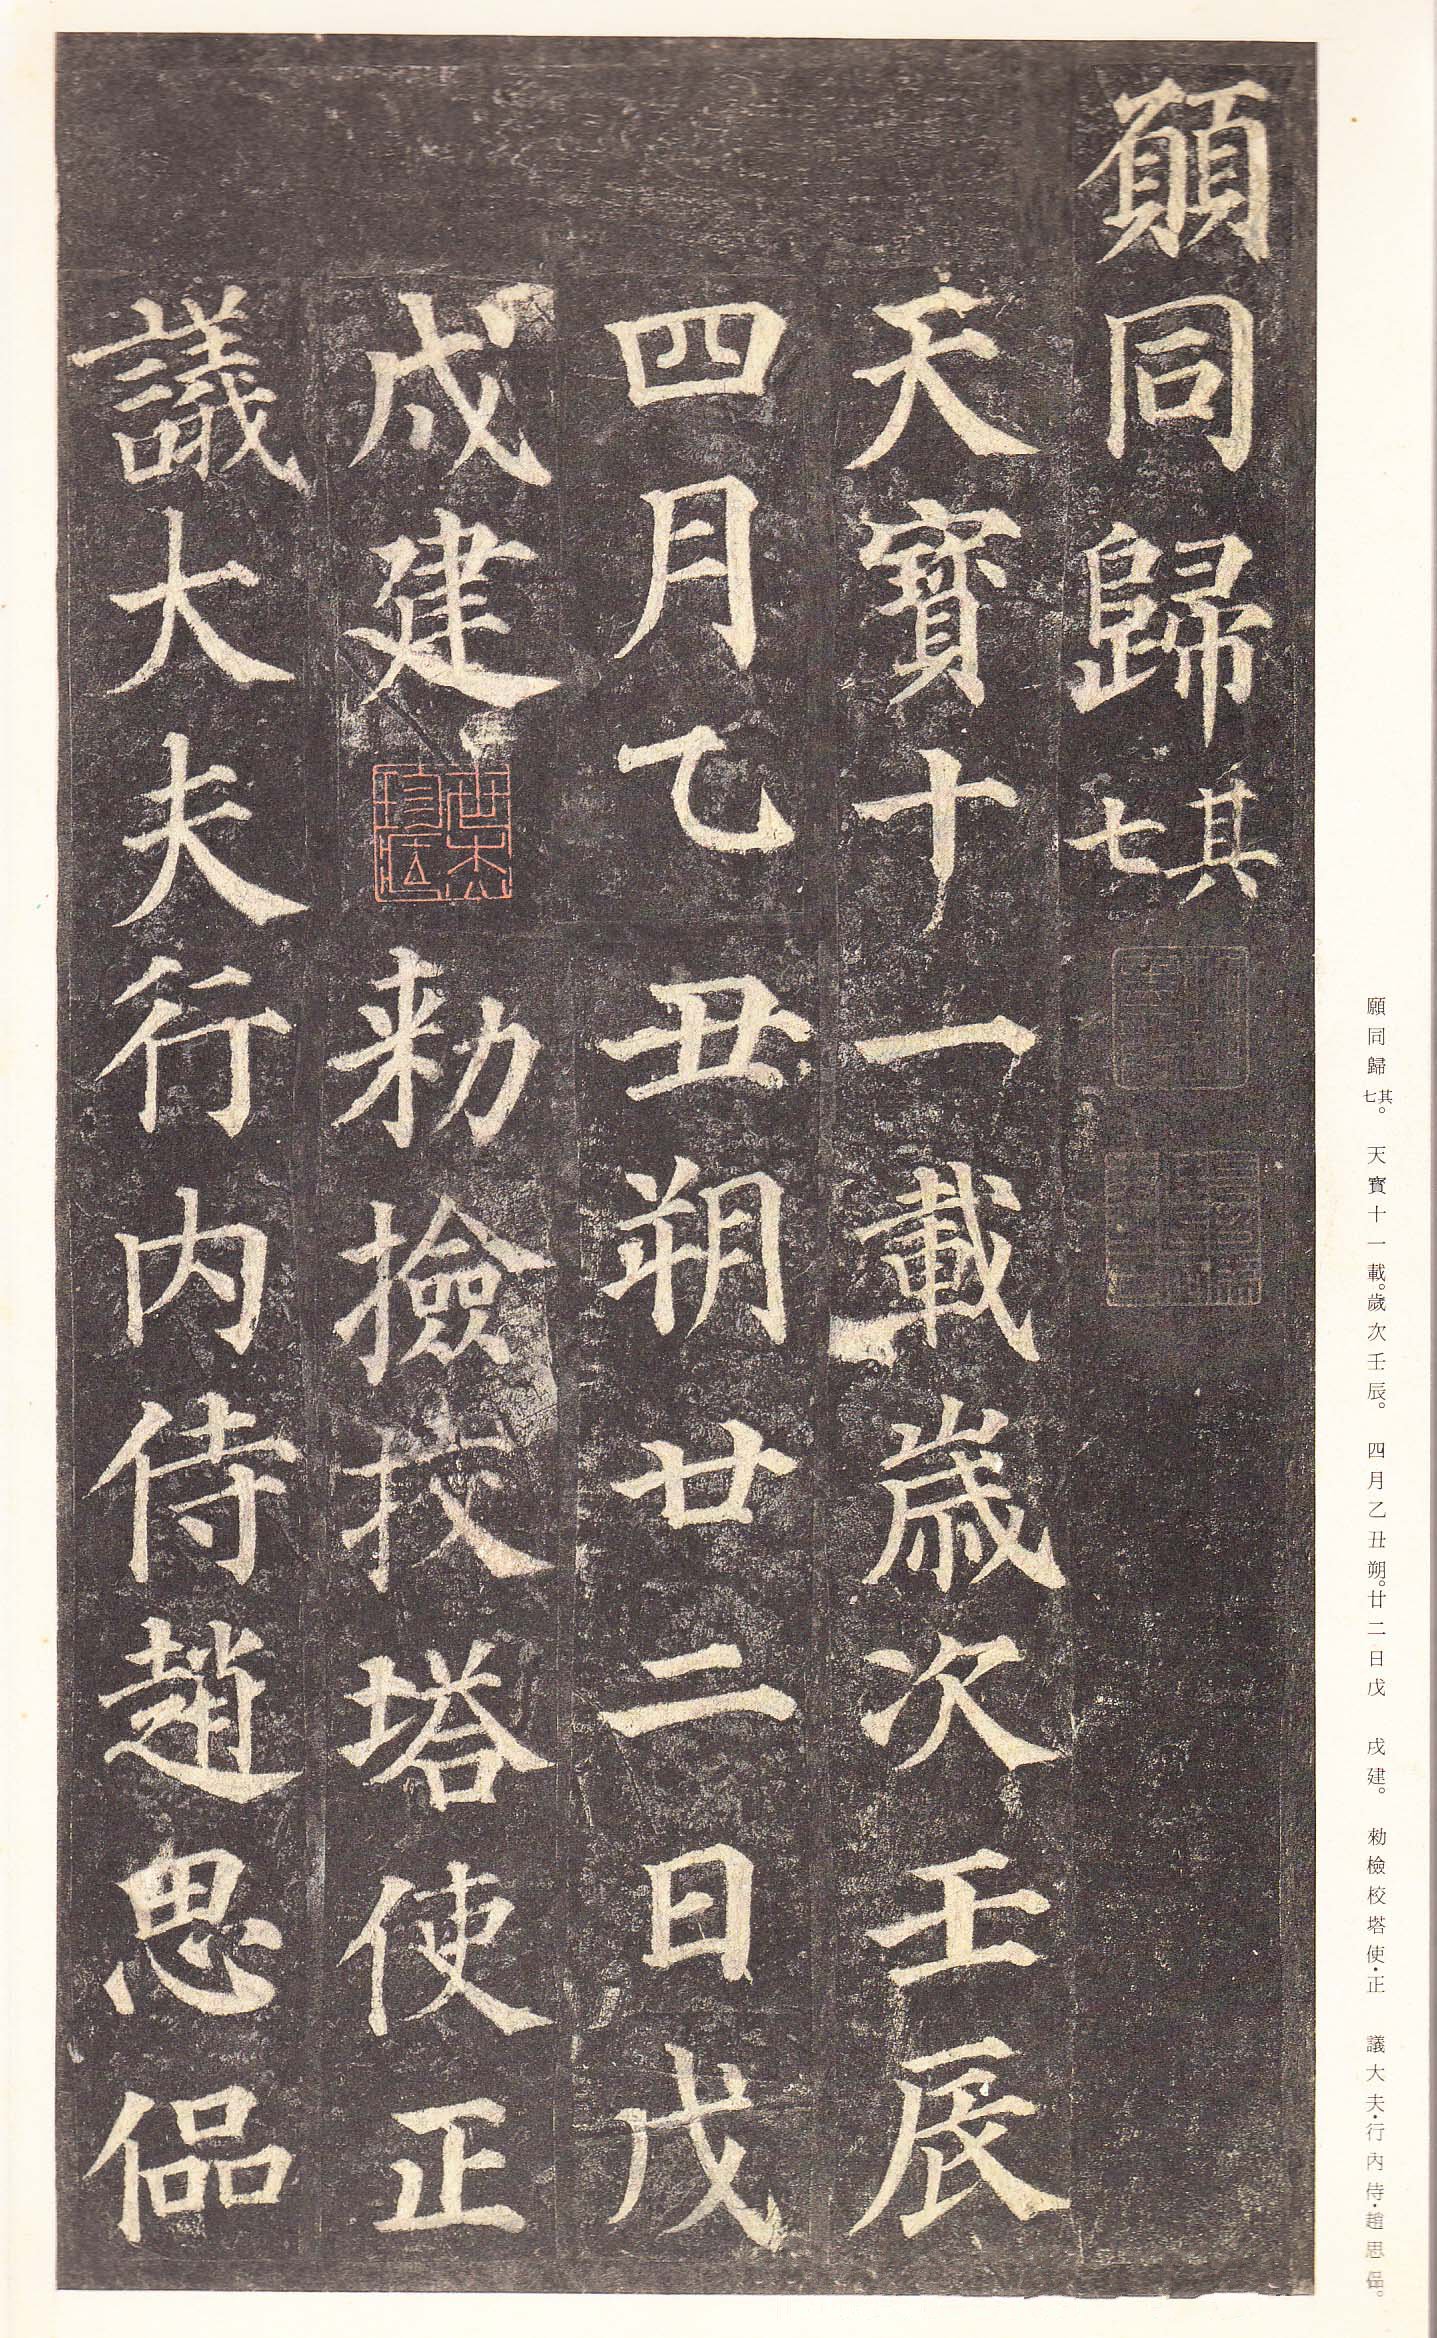 願同歸其七
天寶十一載歲次壬辰
四月乙丑朔廿二日戊
戌建勑檢校塔使正
議大夫行內侍趙思偘
願同歸其七。天寶十一載。歲次壬辰。四月乙丑朔。廿二日戊戌建。勑檢校塔使・正議大夫・行內侍・趙思偘。